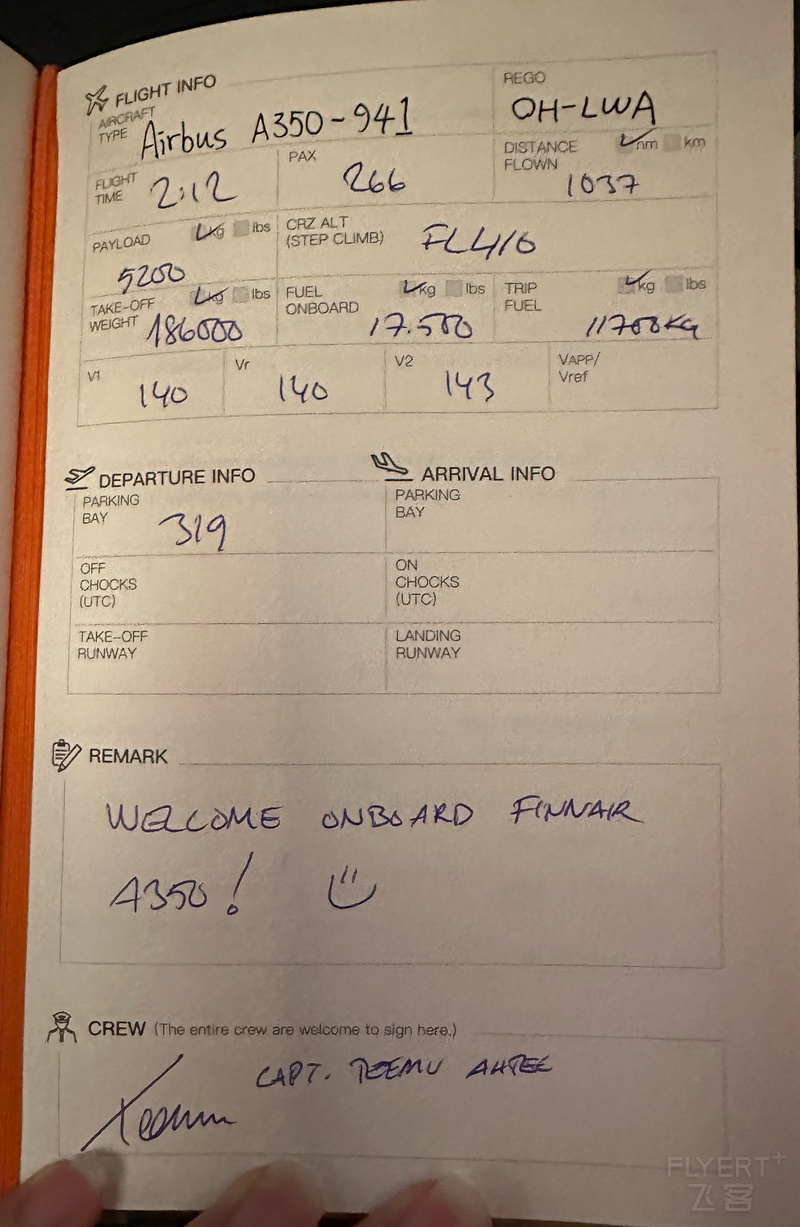 FLIGHT INFO
AIRCRAFT TYPE Airbus A350-941
REGO OH-LWA
FLIGHT TIME 2:12
PAX 266
DISTANCE FLOWN nm km 1037
PAYLOAD kg lbs 5200
CRZ ALT (STEP CLIMB) FL410
TAKE-OFF WEIGHT kg lbs 186000
FUEL ONBOARD kg lbs 17.500
TRIP FUEL kg lbs 11700KG
V1 140
Vr 140
V2 143
VAPP/ Vref
DEPARTURE INFO
ARRIVAL INFO
PARKING BAY 319
PARKING BAY
OFF CHOCKS (UTC)
ON CHOCKS (UTC)
TAKE-OFF RUNWAY
LANDING RUNWAY
REMARK
WELCOME ONBOARD FINNAIR
A350!
CREW (The entire crew are welcome to sign here.)
CAPT. TEEMU
FLYERT+
飞客